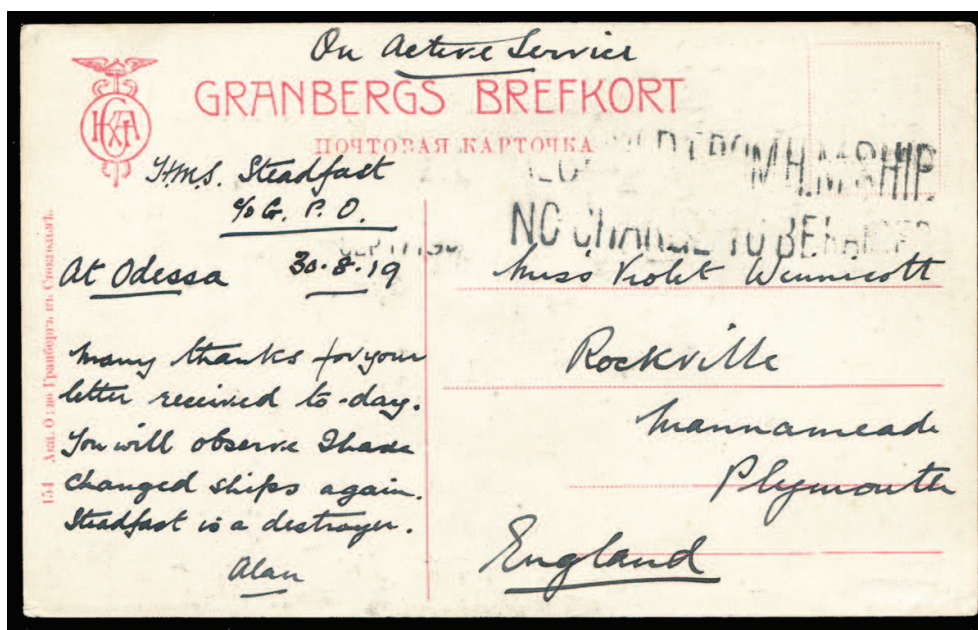 On Active Service
GRANBERGS BREFKORT
ПОЧТОВАЯ КАРТОЧКА
FROM H.M. SHIP
NO CHARGE TO BE RAISED
H.M.S. Steadfast
c/o G. P. O.
At Odessa 30-8-19
Many thanks for your
letter received to-day.
You will observe I have
changed ships again.
Steadfast is a destroyer.
Alan
Miss Violet Winnicott
Rockville
Mannameade
Plymouth
England
154 Акц. О-во Гранбергъ въ Стокгольмѣ.